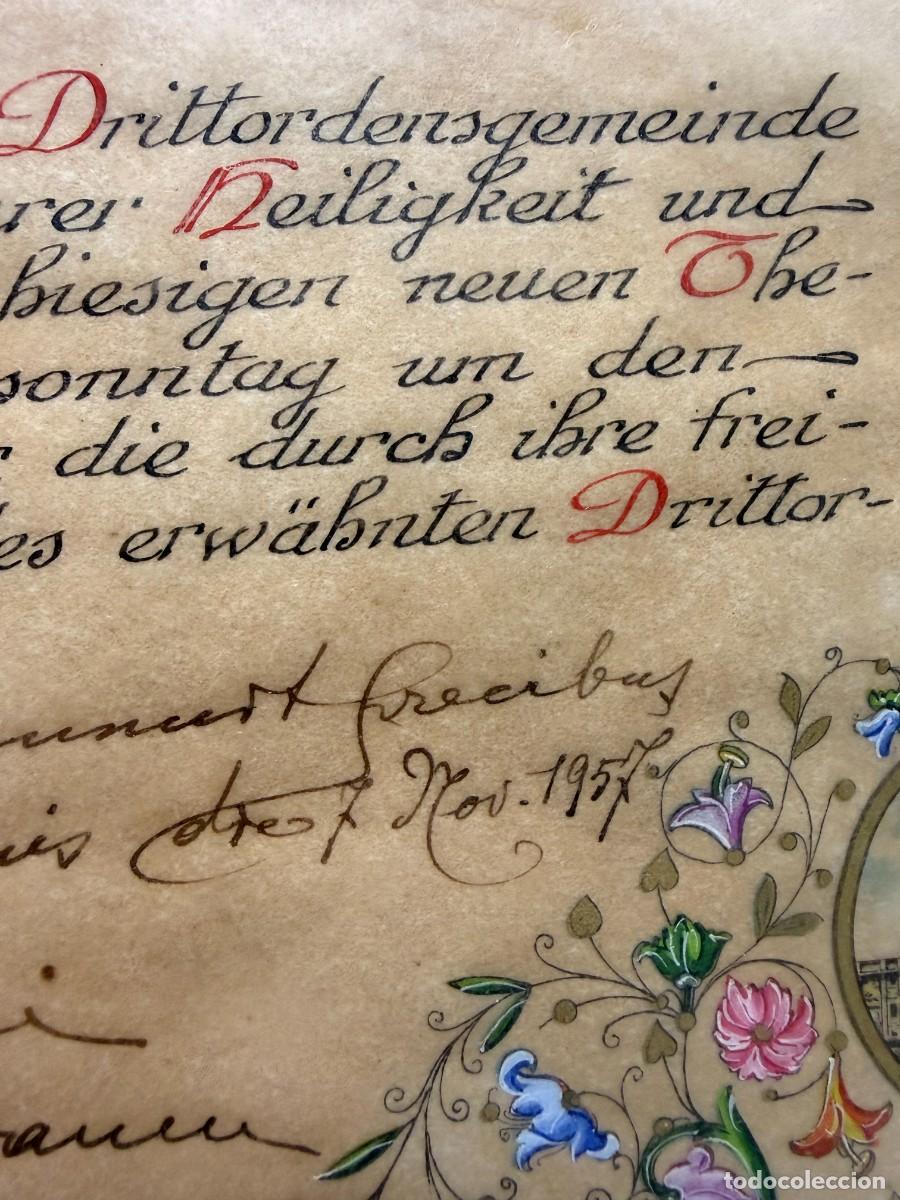 Drittordensgemeinde
rer Heiligkeit und
hiesigen neuen The-
sonntag um den
r die durch ihre frei-
es erwähnten Drittor-
precibus
die 7 Nov. 1957
todocoleccion